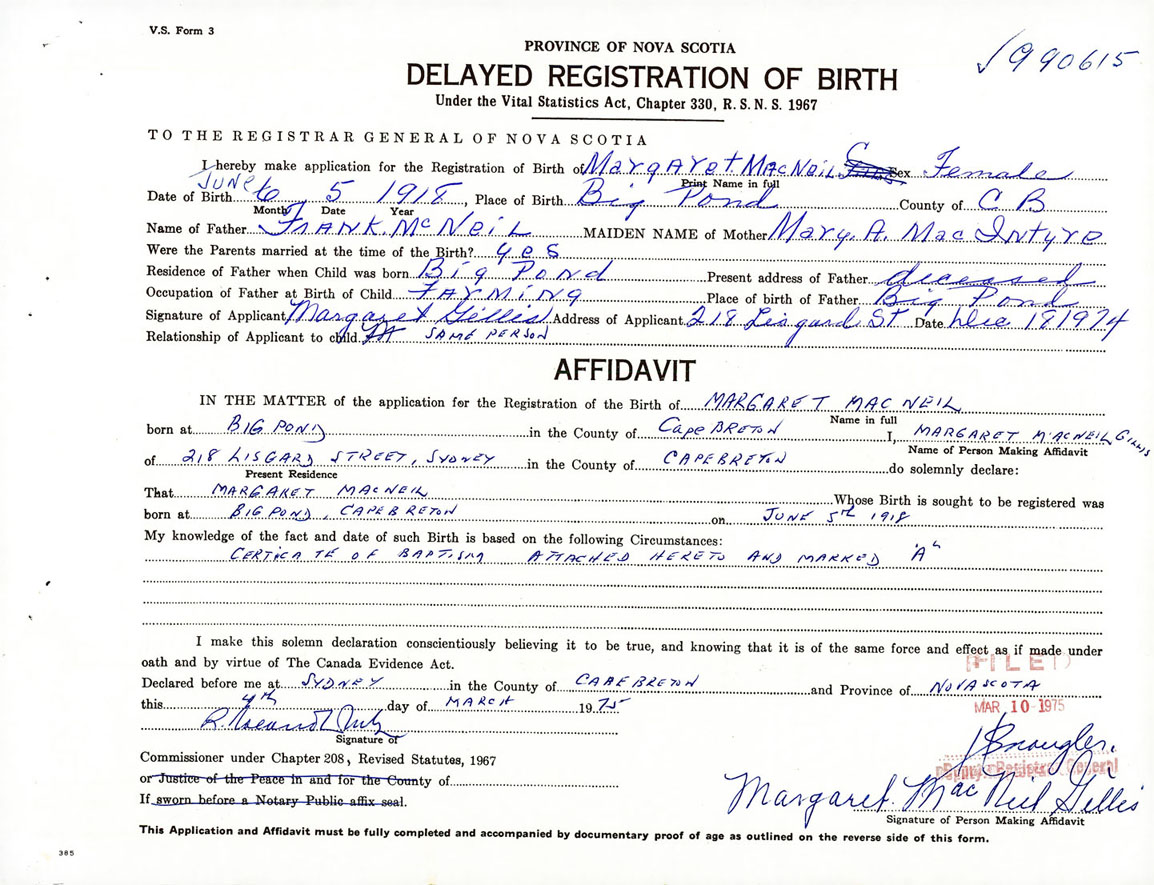 V.S. Form 3
PROVINCE OF NOVA SCOTIA
√990615
DELAYED REGISTRATION OF BIRTH
Under the Vital Statistics Act, Chapter 330, R. S. N. S. 1967
TO THE REGISTRAR GENERAL OF NOVA SCOTIA
I hereby make application for the Registration of Birth of Margaret MacNeil Sex Female
Print Name in full
JUNE
Date of Birth 6 5 1918, Place of Birth Big Pond County of C B
Month Date Year
Name of Father FRANK. McNeil MAIDEN NAME of Mother Mary. A. MacIntyre
Were the Parents married at the time of the Birth? yes
Residence of Father when Child was born Big Pond Present address of Father diceased
Occupation of Father at Birth of Child Farming Place of birth of Father Big Pond
Signature of Applicant Margaret Gillis Address of Applicant 218 Lisgard St Date Dec 18 1974
Relationship of Applicant to child. SAME PERSON
AFFIDAVIT
IN THE MATTER of the application for the Registration of the Birth of MARGARET MAC NEIL
Name in full
born at BIG POND in the County of Cape BRETON I, MARGARET MACNEIL GILLIS
Name of Person Making Affidavit
of 218 LISGARD STREET, SYDNEY in the County of CAPE BRETON do solemnly declare:
Present Residence
That MARGARET MACNEIL Whose Birth is sought to be registered was
born at BIG POND, CAPE BRETON on JUNE 5th 1918
My knowledge of the fact and date of such Birth is based on the following Circumstances:
CERTICATE OF BAPTISM ATTACHED HERETO AND MARKED "A"
I make this solemn declaration conscientiously believing it to be true, and knowing that it is of the same force and effect as if made under
oath and by virtue of The Canada Evidence Act.
FILED
Declared before me at SYDNEY in the County of CAPE BRETON and Province of NOVA SCOTA
this 4th day of MARCH 1975
MAR 10 1975
Signature of
Commissioner under Chapter 208, Revised Statutes, 1967
or Justice of the Peace in and for the County of
Deputy Registrar General
If sworn before a Notary Public affix seal.
Margaret. Mac Neil Gillis
Signature of Person Making Affidavit
This Application and Affidavit must be fully completed and accompanied by documentary proof of age as outlined on the reverse side of this form.
385